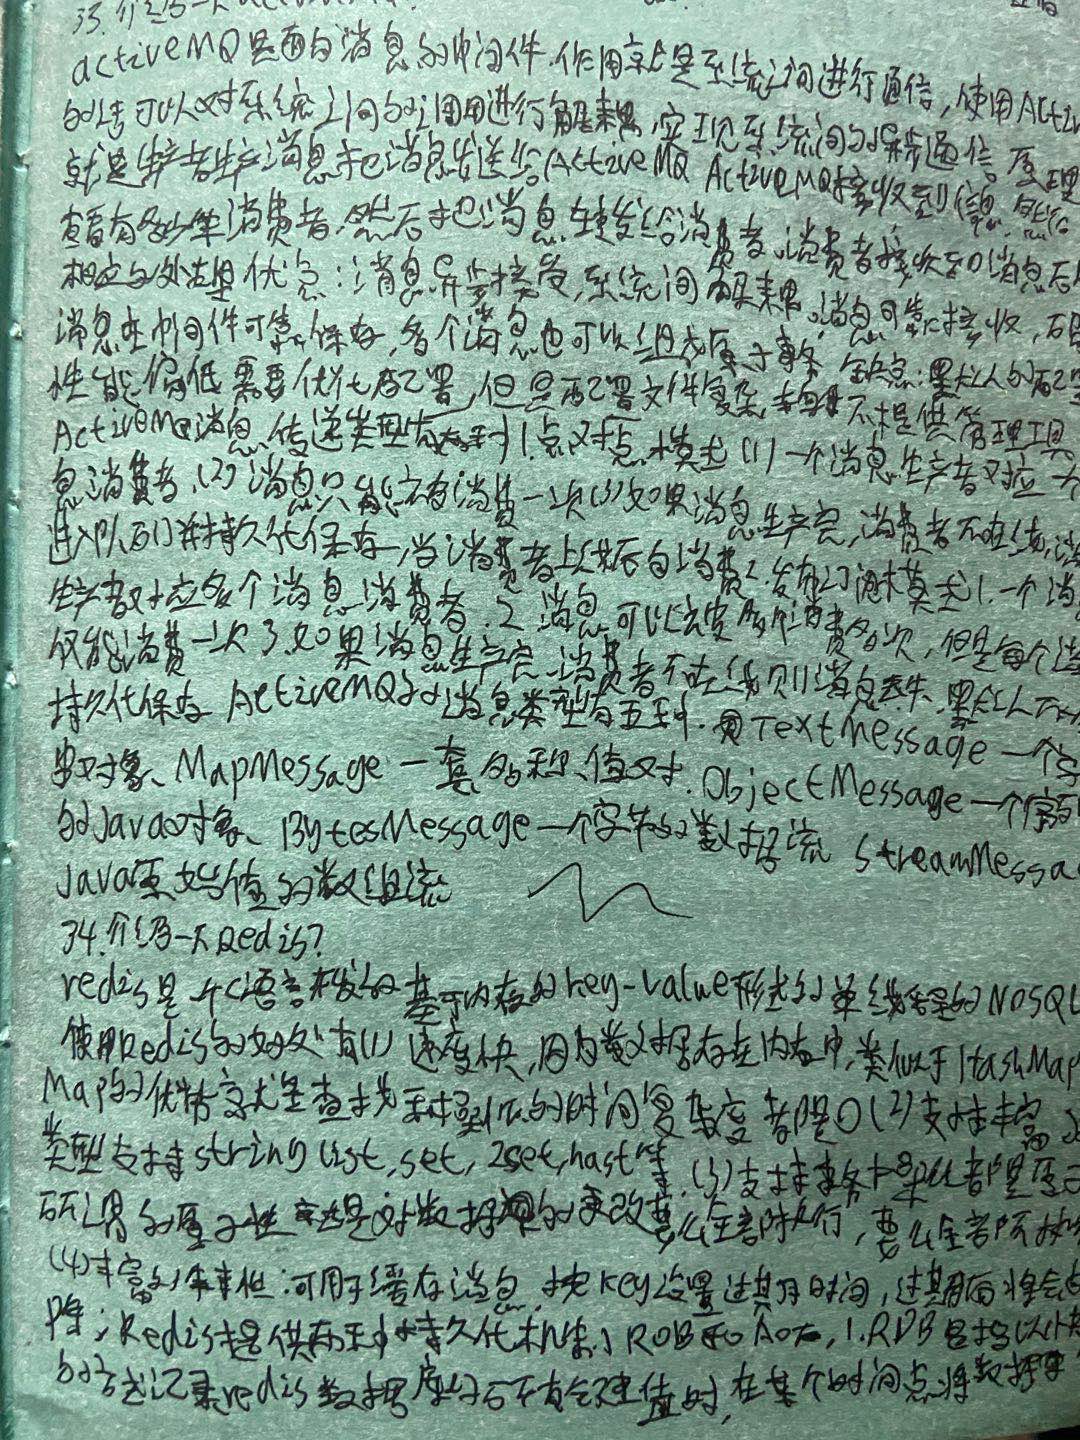 33.介绍一下activeMQ?
activeMQ是面向消息的中间件.作用就是系统之间进行通信,使用Activ
的话可以对系统之间的调用进行解耦,实现系统间的异步通信 原理
就是生产者生产消息把消息发送给ActiveMQ ActiveMQ接收到消息,然后
查看有多少个消费者,然后把消息转发给消费者.消费者接收到消息后
相应的处理 优点:消息异步接受,系统间解耦,消息可靠接收,确
消息在中间件可靠保存,多个消息也可以组成原子事务 缺点:默认的配置
性能偏低 需要优化配置,但是配置文件复杂,本身不提供管理工具
ActiveMQ消息传递类型有两种 1.点对点模式 (1)一个消息生产者对应一个
息消费者,(2)消息只能被消费一次(3)如果消息生产完,消费者不在线,消
进入队列并持久化保存,当消费者上线后自消费2.发布订阅模式 1.一个消
生产者对应多个消息消费者.2.消息可以被多个消费多次,但是每个消
仅能消费一次3.如果消息生产完 消费者不在线则消息丢失.默认不
持久化保存 ActiveMQ的消息类型有五种.TextMessage一个字
串对象、MapMessage一套名称、值对.ObjectMessage一个序列
的Java对象、BytesMessage一个字节的数据流 StreamMessa
Java原始值的数组流
34.介绍一下Redis?
redis是一个C语言开发的 基于内存的key-value形式的单线程的NOSQL
使用Redis的好处有(1)速度快,因为数据存在内存中,类似于HashMap
Map的优势就是查找和操作的时间复杂度都是O(2)支持丰富
类型 支持string list,set,zset,hast等.(3)支持事务操作都是原子
所谓的原子性就是对数据的更改要么全部执行,要么全部不执
(4)丰富的特性:可用于缓存消息,按key设置过期时间,过期后将会
除;Redis提供两种持久化机制 RDB和AOF,1.RDB是指以
的方式记录redis数据库的所有键值对,在某个时间点将数据